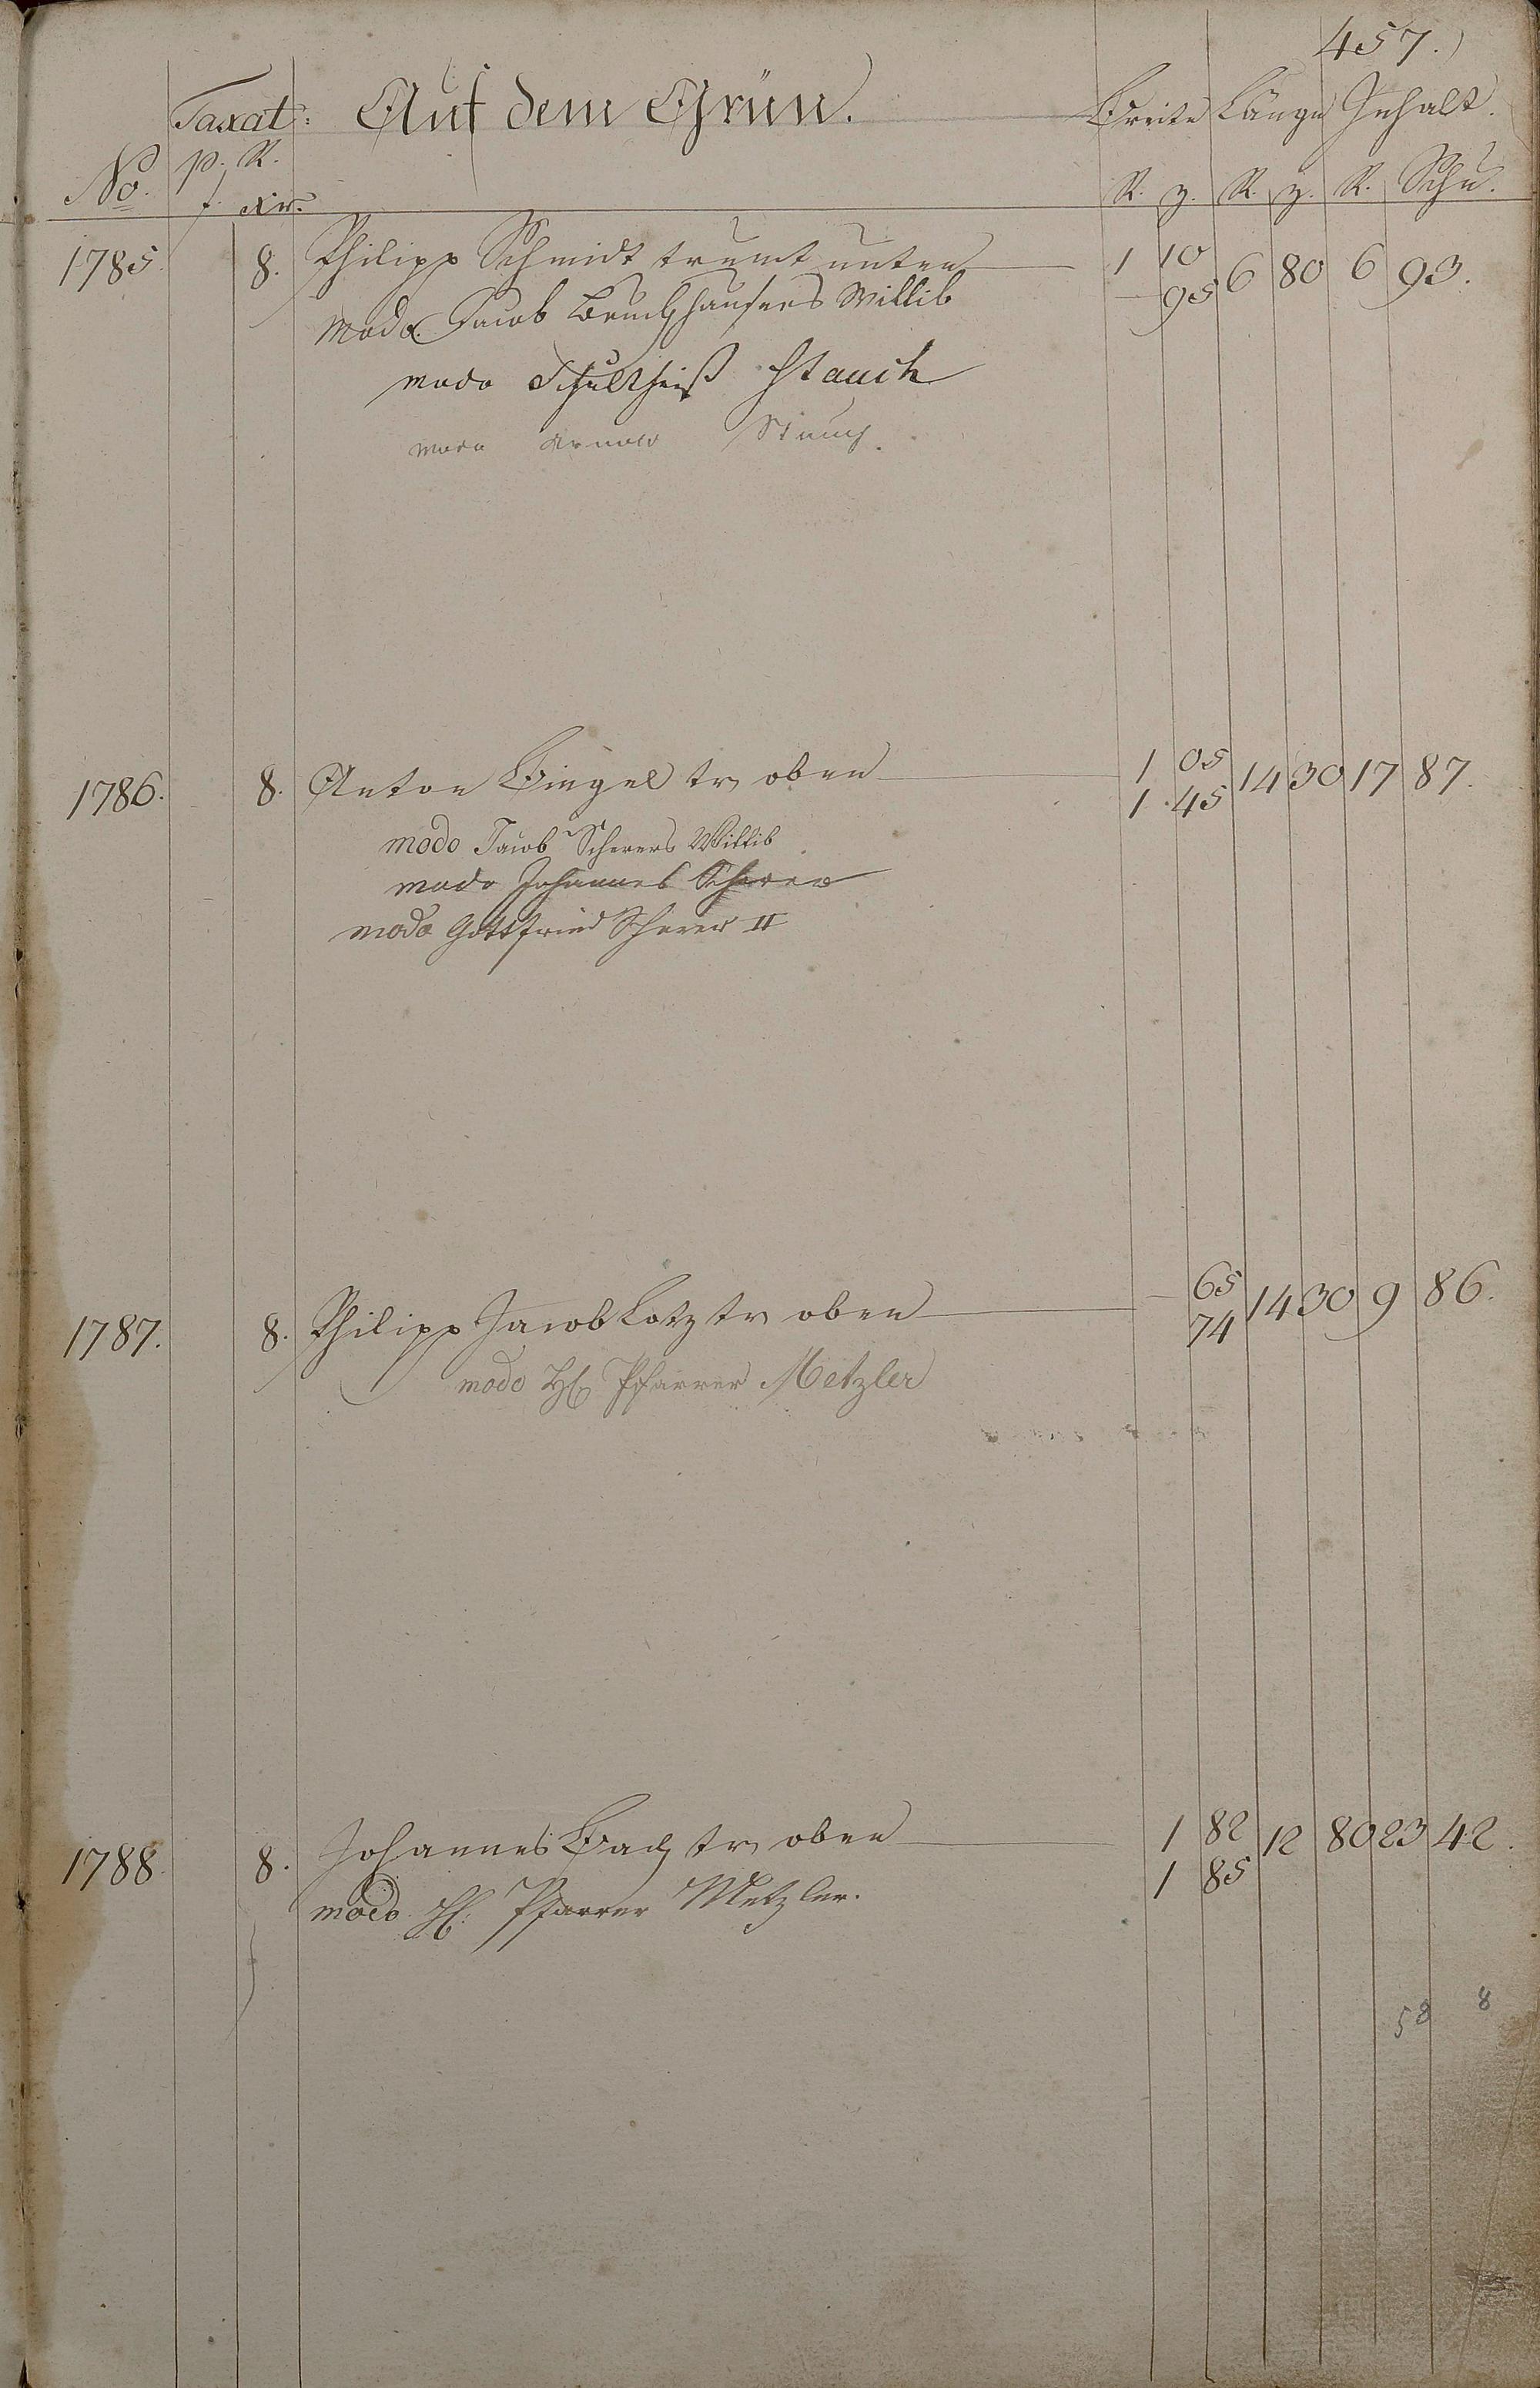 457.)
Taxat: Auf dem Grün. Breite Länge Inhalt.
No. p. R. R. z. R. z. R. Schu.
f. xr.
1785. 8. Philipp Schmidt trumt unten 1 10 6 80 6 93.
— 95
modo Jacob Bruchhausers Wittib
modo Schultheiß Stauch
modo Arnold Stauch.
1786. 8. Anton Bingel tr oben 1 05 14 30 17 87.
1 45
modo Jacob Scherers Wittib
modo Johannes Scherer
modo Gottfried Scherer II
1787. 8. Philipp Jacob Lotz tr oben — 65 14 30 9 86.
74
modo H. Pfarrer Metzler
1788. 8. Johannes Bach tr oben 1 82 12 80 23 42.
1 85
modo H. Pfarrer Metzler.
58 8